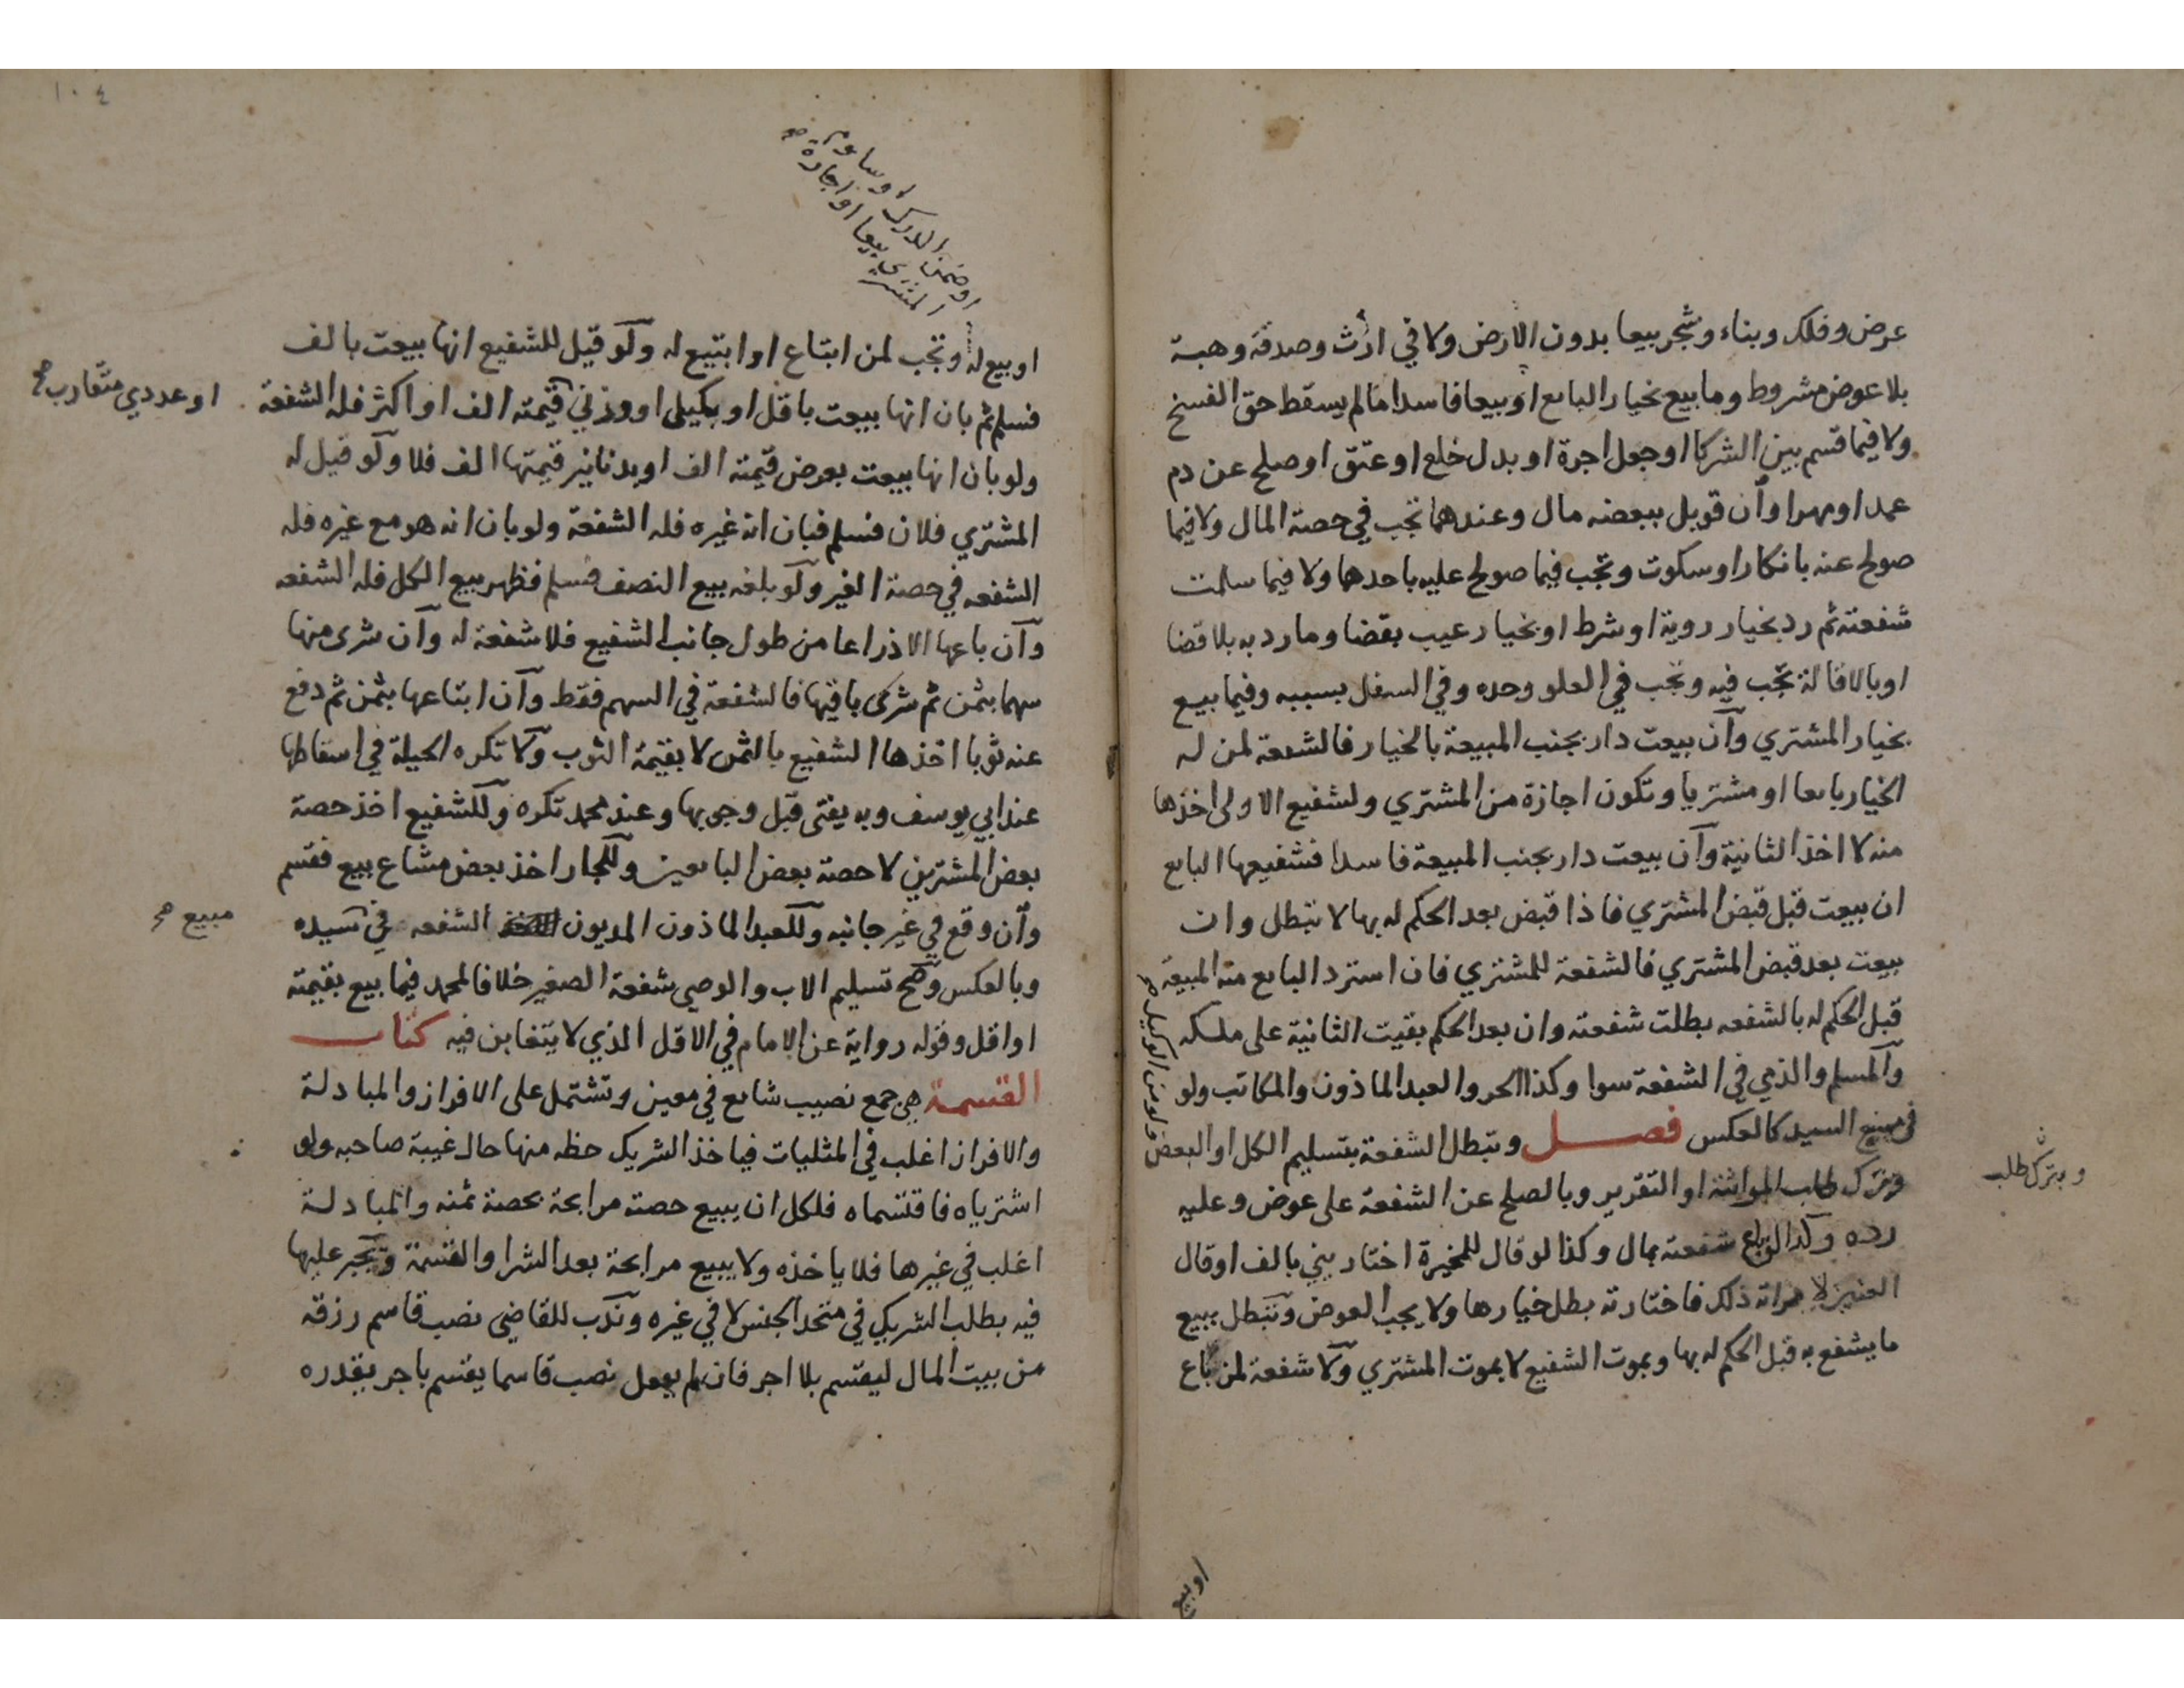 عرض وفلك وبناء وشجر بيعا بدون الارض ولا في ارث وصدقة وهبة
بلا عوض مشروط وما بيع بخيار البايع او بيعا فاسدا ما لم يسقط حق الفسخ
ولا فيما قسم بين الشركا او جعل اجرة او بدل خلع او عتق او صلح عن دم
عمد او مهرا وان قوبل ببعضه مال وعندهما تجب في حصة المال ولا فيما
صولح عنه بانكار او سكوت وتجب فيما صولح عليه باحدهما ولا فيما سلمت
شفعته ثم رد بخيار روية او شرط او بخيار عيب بقضا وما رد به بلا قضا
او بالاقالة تجب فيه وتجب في العلو وحده وفي السفل بسببه وفيما بيع
بخيار المشتري وان بيعت دار بجنب المبيعة بالخيار فالشفعة لمن له
الخيار بايعا او مشتريا وتكون اجازة من المشتري ولشفيع الاولى اخذها
منه لا اخذ الثانية وان بيعت دار بجنب المبيعة فاسدا فشفيعها البايع
ان بيعت قبل قبض المشتري فاذا قبض بعد الحكم له بها لا تبطل وان
بيعت بعد قبض المشتري فالشفعة للمشتري فان استرد البايع منه المبيعة
قبل الحكم له بالشفعه بطلت شفعته وان بعد الحكم بقيت الثانية على ملكه
والمسلم والذمي في الشفعة سوا وكذا الحر والعبد الماذون والمكاتب ولو
في مبيع السيد كالعكس فصل وتبطل الشفعة بتسليم الكل او البعض
ولو من الوكيل صح
وترك طلب المواثبة او التقرير وبالصلح عن الشفعة على عوض وعليه
وبترك طلب
رده وكذا لو باع شفعته بمال وكذا لو قال للمخيرة اختاريني بالف او قال
العنين لامراته ذلك فاختارته بطل خيارها ولا يجب العوض وتبطل ببيع
ما يشفع به قبل الحكم له بها وبموت الشفيع لا بموت المشتري ولا شفعة لمن باع
او بيع
١٠٤
او ضمن الدرك او ساوم
المشتري بيعا او اجارة صح
او بيع له وتجب لمن ابتاع او ابتيع له ولو قيل للشفيع انها بيعت بالف
فسلم ثم بان انها بيعت باقل او بكيلي او وزني قيمته الف او اكثر فله الشفعة
او عددي متقارب صح
ولو بان انها بيعت بعرض قيمته الف او بدنانير قيمتها الف فلا ولو قيل له
المشتري فلان فسلم فبان انه غيره فله الشفعة ولو بان انه هو مع غيره فله
الشفعه في حصة الغير ولو بلغه بيع النصف فسلم فظهر بيع الكل فله الشفعه
وان باعها الا ذراعا من طول جانب الشفيع فلا شفعة له وان شرى منها
سهما بثمن ثم شرى باقيها فالشفعة في السهم فقط وان ابتاعها بثمن ثم دفع
عنه ثوبا اخذها الشفيع بالثمن لا بقيمة الثوب ولا تكره الحيلة في اسقاطها
عند ابي يوسف وبه يفتى قبل وجوبها وعند محمد تكره وللشفيع اخذ حصة
بعض المشترين لا حصة بعض البايعين وللجار اخذ بعض مشاع بيع فقسم
وان وقع في غير جانبه وللعبد الماذون المديون الشفعه في سيده
مبيع صح
وبالعكس وصح تسليم الاب والوصي شفعة الصغير خلافا لمحمد فيما بيع بقيمته
او اقل وقوله رواية عن الامام في الاقل الذي لا يتغابن فيه كتاب
القسمة هي جمع نصيب شايع في معين وتشتمل على الافراز والمبادلة
والافراز اغلب في المثليات فياخذ الشريك حظه منها حال غيبة صاحبه ولو
اشترياه فاقتسماه فلكل ان يبيع حصته مرابحة بحصة ثمنه والمبادلة
اغلب في غيرها فلا ياخذه ولا يبيع مرابحة بعد الشرا والقسمة وتجبر عليها
فيه بطلب الشريك في متحد الجنس لا في غيره وندب للقاضي نصب قاسم رزقه
من بيت المال ليقسم بلا اجر فان لم يفعل نصب قاسما يقسم باجر يقدره